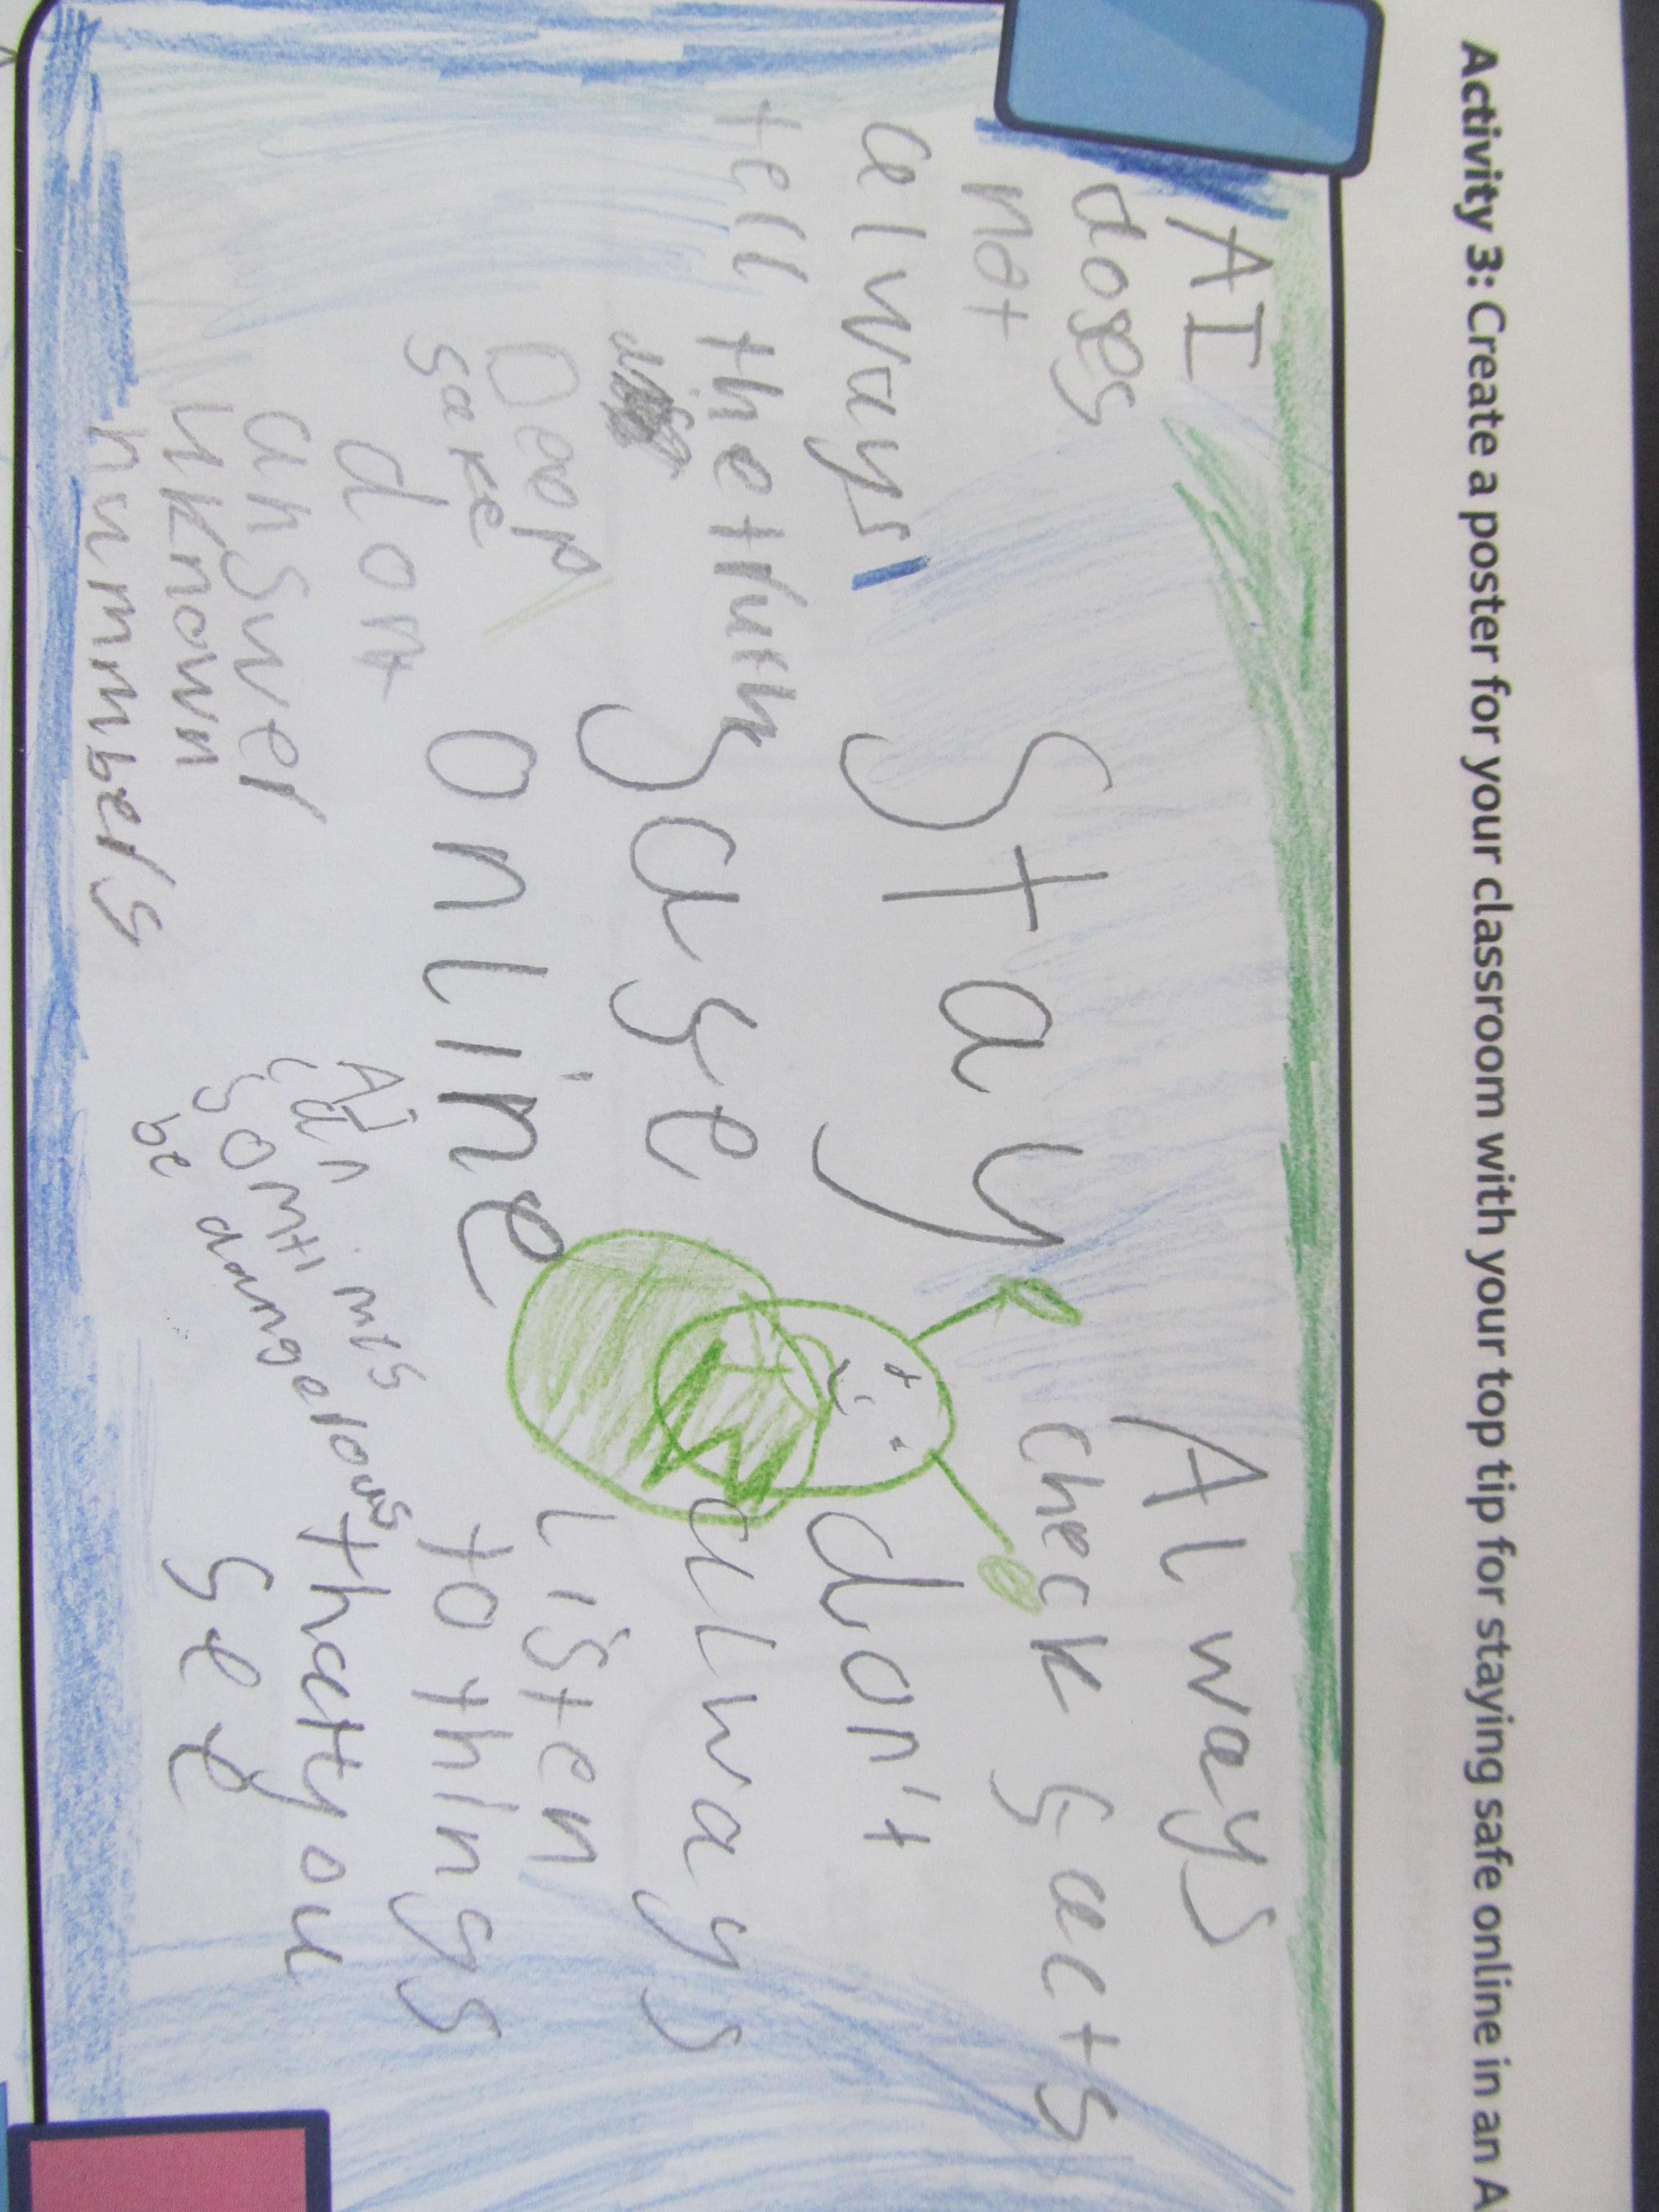 Activity 3: Create a poster for your classroom with your top tip for staying safe online in an A
AI
does
not
always
tell the truth
Deep
fake
dont
answer
uknown
nummbers
Stay
safe
online
AI
can
somtimes
be dangerous
Always
check facts
don't
always
listen
to things
that you
see